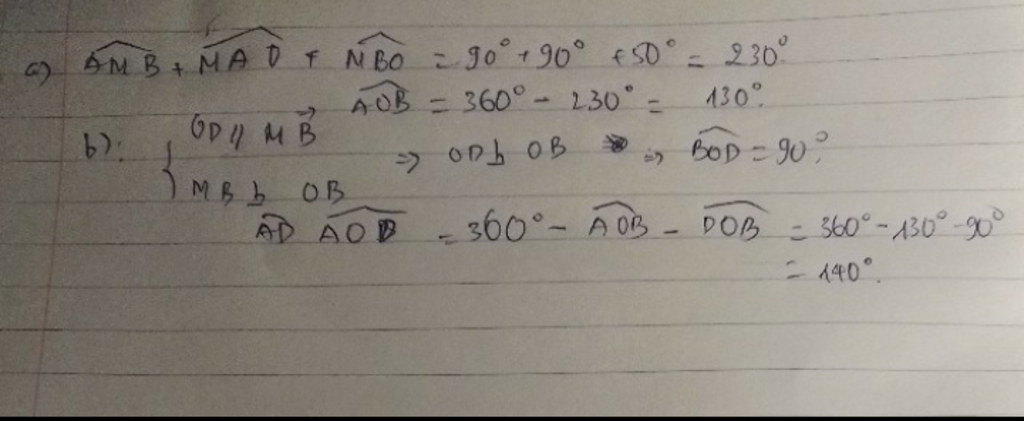 a) AMB + MAO + MBO = 90° + 90° + 50° = 230°.
→ AOB = 360° - 230° = 130°.
b): { OD // MB
MB ⊥ OB
⇒ OD ⊥ OB ⇒ BOD = 90°.
AD AOD = 360° - AOB - DOB = 360° - 130° - 90°
= 140°.